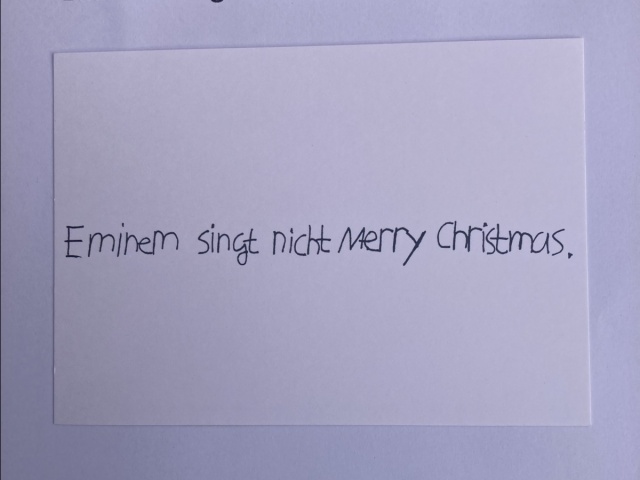 Eminem singt nicht Merry Christmas.